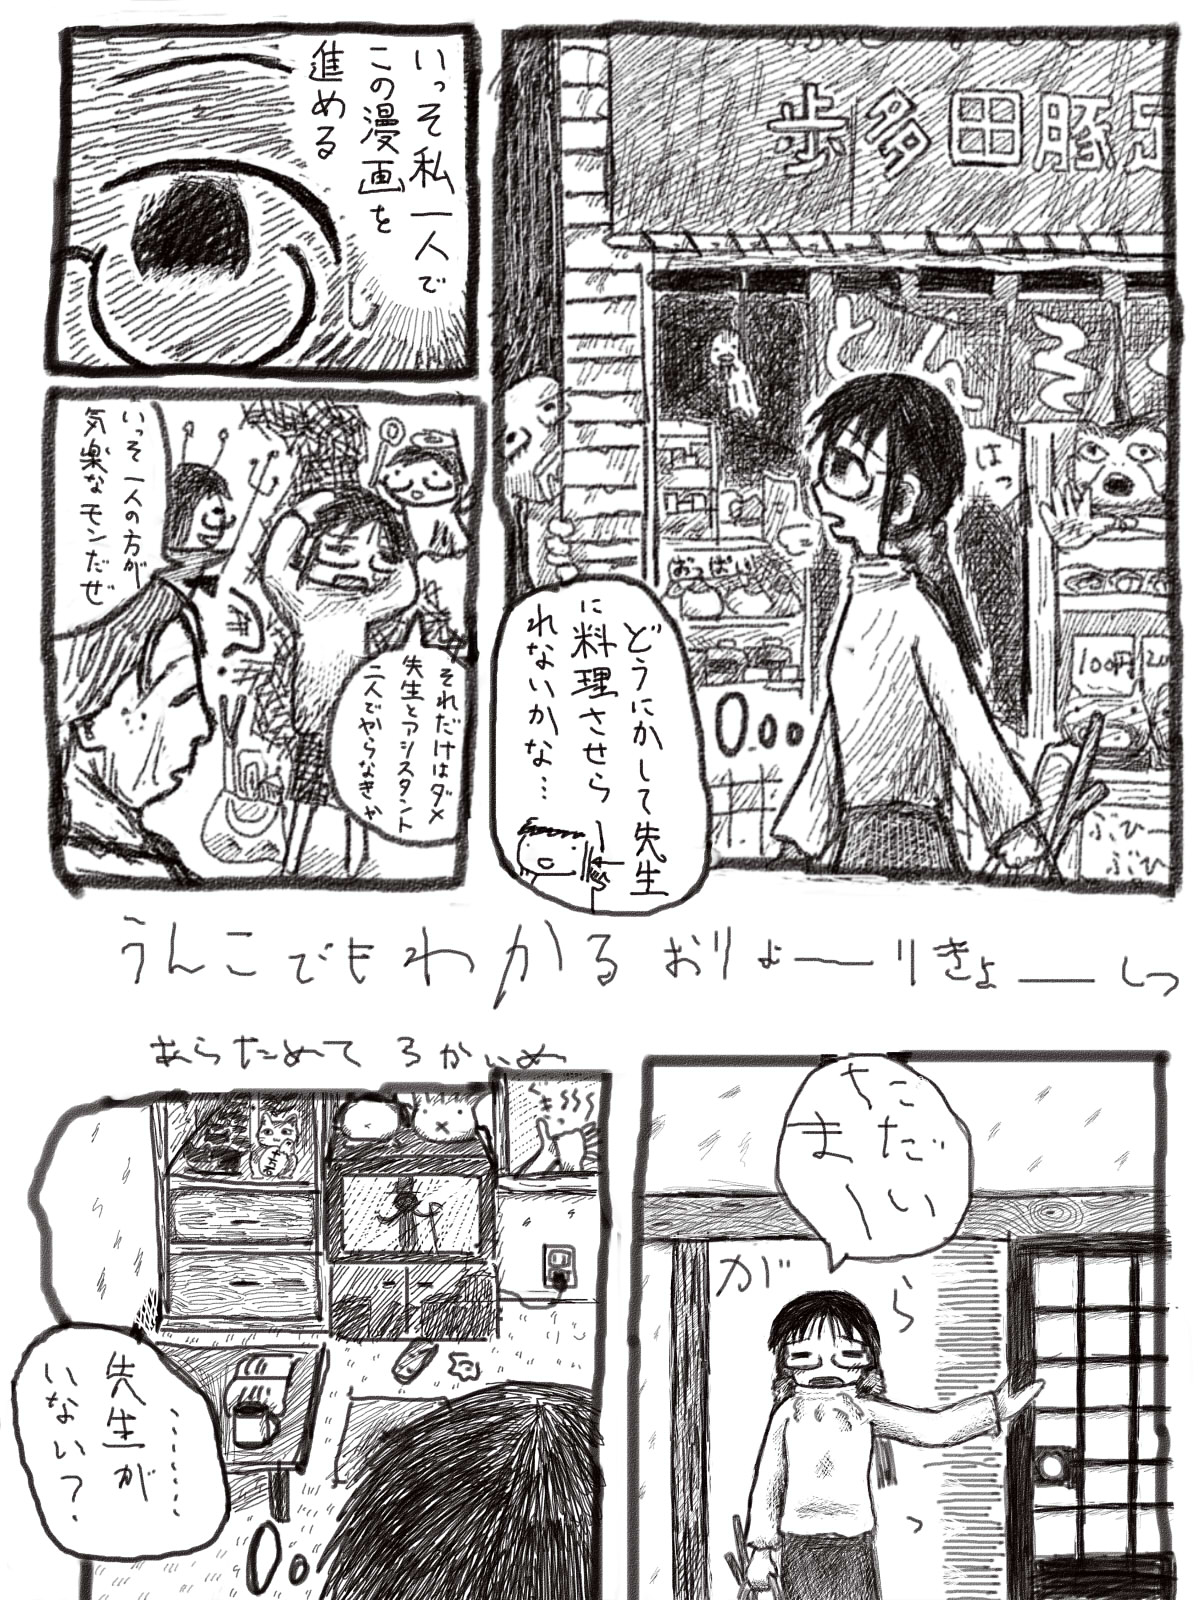 歩多田豚足
とんそく
はっ
おっぱい
100円
ぶひー
ぶひ
どうにかして先生
に料理させら
れないかな…
いっそ私一人で
この漫画を
進める
いっそ一人の方が
気楽なモンだぜ
それだけはダメ
先生とアシスタント
二人でやらなきゃ
うんこでもわかるおりょーりきょーしつ
あらためて3かいめ
ただい
まー
がらっ
………
先生が
いない？